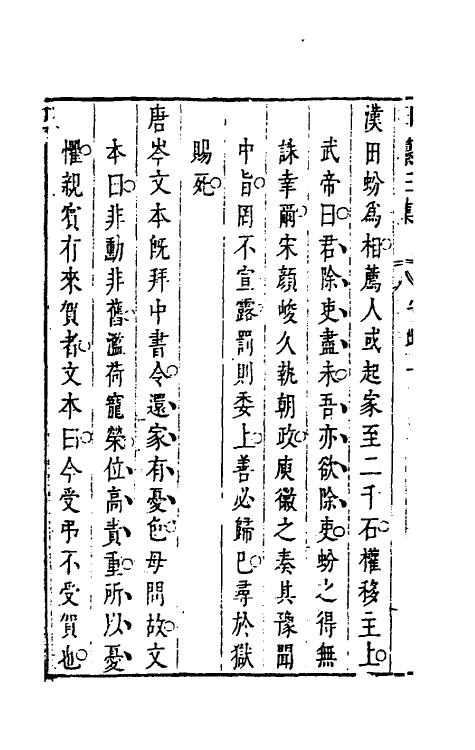 漢田蚡爲相薦人或起家至二千石權移主上
武帝曰君除吏盡未吾亦欲除吏蚡之得無
誅幸爾宋顏峻久執朝政庾徽之奏其豫聞
中旨罔不宣露罰則委上善必歸己尋於獄
賜死
唐岑文本旣拜中書令還家有憂色母問故文
本曰非勳非舊濫荷寵榮位高責重所以憂
懼親賓有來賀者文本曰今受弔不受賀也